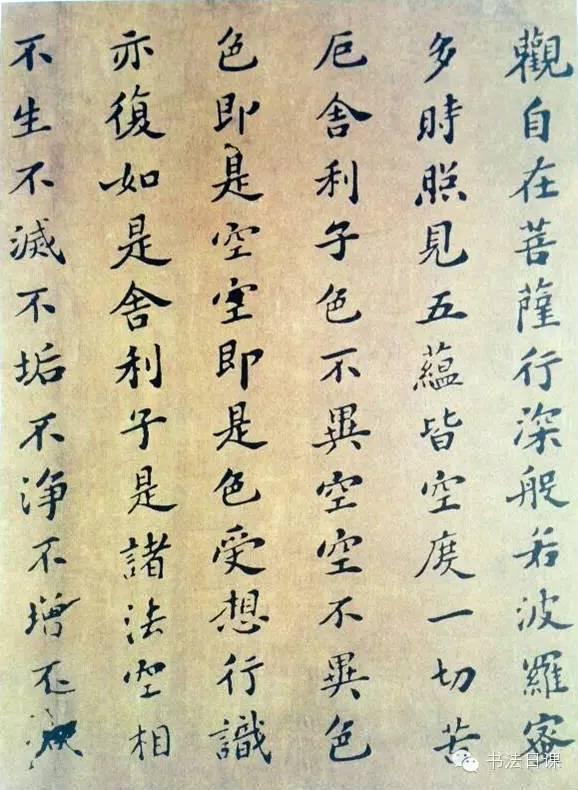 觀自在菩薩行深般若波羅蜜
多時照見五蘊皆空度一切苦
厄舍利子色不異空空不異色
色即是空空即是色受想行識
亦復如是舍利子是諸法空相
不生不滅不垢不淨不增不減
书法日课